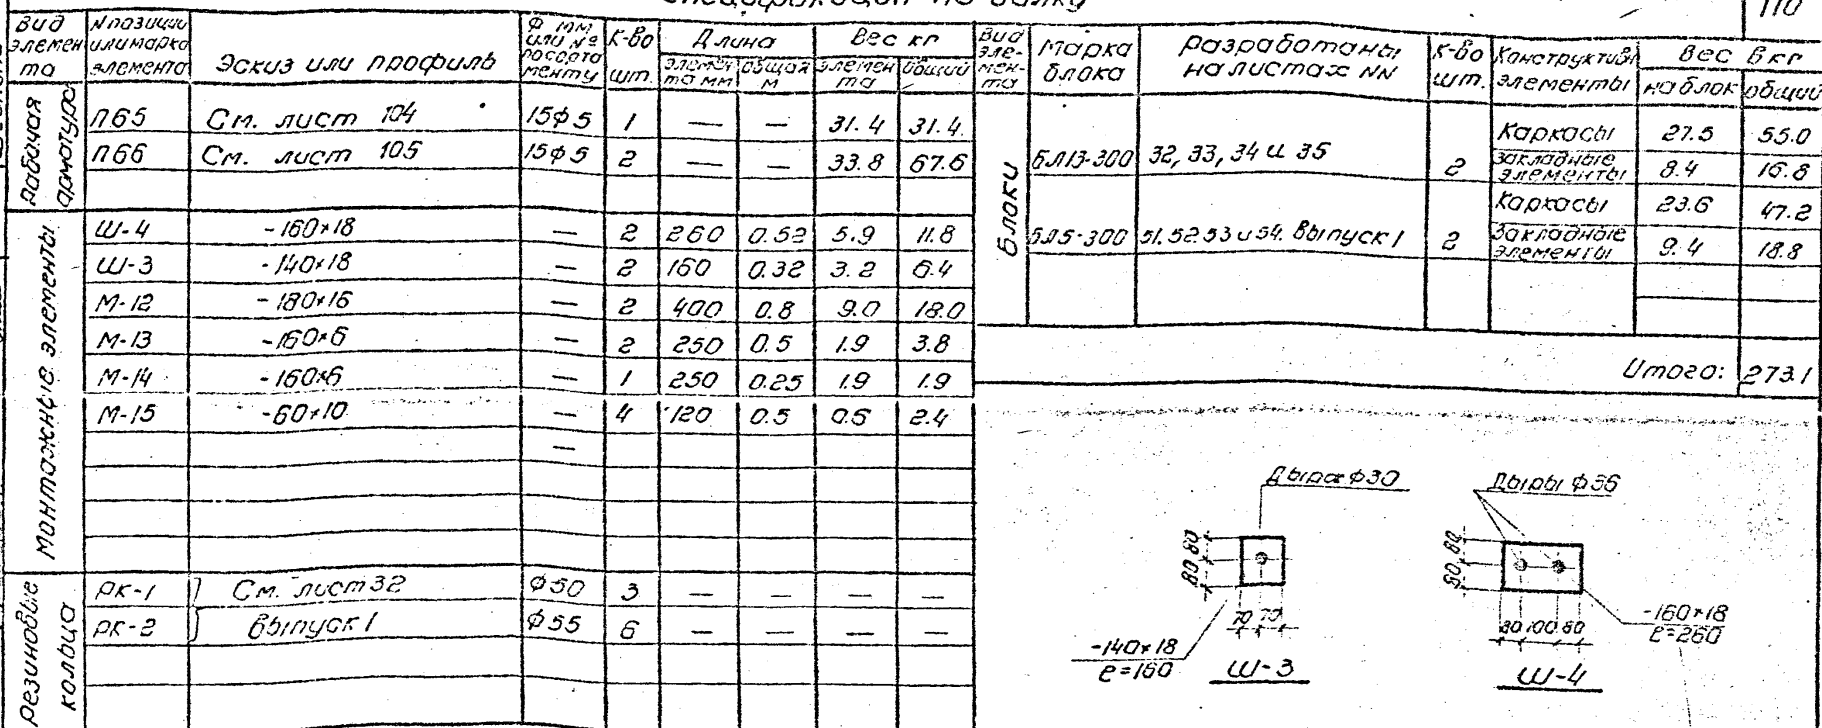 Спецификация на балку
110
Вид элемента | N позиции или марка элемента | Эскиз или профиль | Ф мм или № по сортаменту | К-во шт. | Длина элемента мм | Длина общая м | Вес кг элемента | Вес кг общий
Рабочая арматура
П65 | См. лист 104 | 15ф5 | 1 | — | — | 31.4 | 31.4
П66 | См. лист 105 | 15ф5 | 2 | — | — | 33.8 | 67.6
Монтажные элементы
Ш-4 | -160×18 | — | 2 | 260 | 0.52 | 5.9 | 11.8
Ш-3 | -140×18 | — | 2 | 160 | 0.32 | 3.2 | 6.4
М-12 | -180×16 | — | 2 | 400 | 0.8 | 9.0 | 18.0
М-13 | -160×6 | — | 2 | 250 | 0.5 | 1.9 | 3.8
М-14 | -160×6 | — | 1 | 250 | 0.25 | 1.9 | 1.9
М-15 | -60×10 | — | 4 | 120 | 0.5 | 0.6 | 2.4
—
Резиновые кольца
РК-1 | См. лист 32 | ф50 | 3 | — | — | — | —
РК-2 | Выпуск 1 | ф55 | 6 | — | — | — | —
Вид элемента | Марка блока | Разработаны на листах NN | К-во шт. | Конструктивн элементы | Вес в кг на блок | Вес в кг общий
Блоки
БЛ13-300 | 32, 33, 34 и 35 | 2 | Каркасы | 27.5 | 55.0
Закладные элементы | 8.4 | 16.8
БЛ5-300 | 51. 52. 53 и 54. Выпуск 1 | 2 | Каркасы | 23.6 | 47.2
Закладные элементы | 9.4 | 18.8
Итого: 273.1
Дыра ф30
80 80
70 70
-140×18
ℓ=160
Ш-3
Дыры ф36
80 80
80 100 80
-160×18
ℓ=260
Ш-4